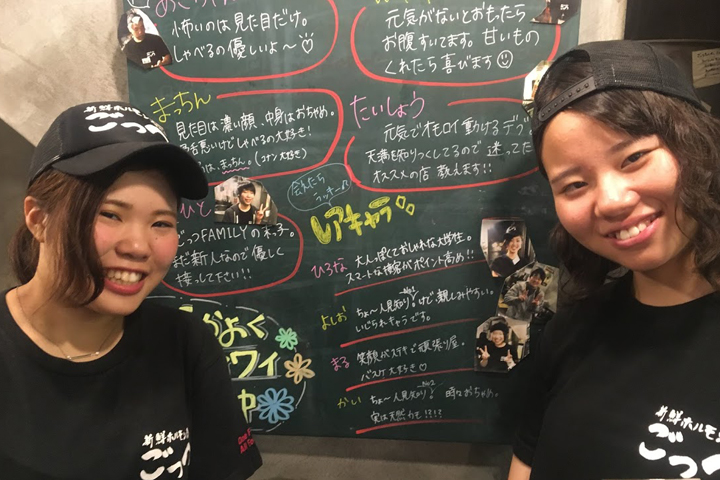 怖いのは見た目だけ。
しゃべるの優しいよ～♡
元気がないとおもったら
お腹すいてます。甘いもの
くれたら喜びます☺
まっちん
見た目は濃い顔、中身はおちゃめ。
しゃべるの大好き!
まっちん。(コナン大好き)
たいしょう
元気でオモロイ動けるデブ。
天満を知りつくしてるので迷ったら
オススメの店教えます!!
ごっつFAMILYの末っ子。
まだ新人なので優しく
接して下さい!!
会えたら
ラッキー
レアキャラ
ひろな 大人っぽくておしゃれな大学生。
スマートな接客がポイント高め!!
よしお ちょ〜人見知り!けど、親しみやすい。
いじられキャラです。
まる 笑顔がステキで頑張り屋。
バスケ大好き♡
かい ちょ〜人見知り! 時々おちゃめ。
実は天然かも!?!?
なかよく
ワイ
中
新鮮ホルモン
ごっつ
新鮮ホルモン
ごっつ